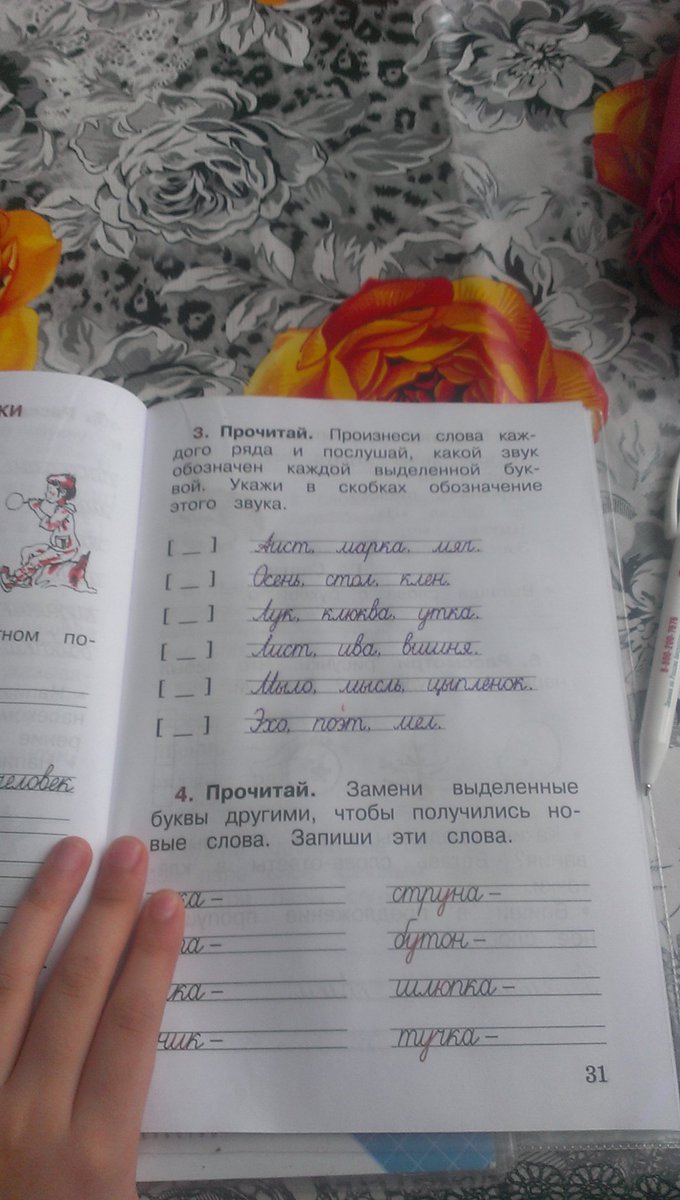 ки
3. Прочитай. Произнеси слова каж-
дого ряда и послушай, какой звук
обозначен каждой выделенной бук-
вой. Укажи в скобках обозначение
этого звука.
[ _ ] Аист, марка, мяч.
[ _ ] Осень, стол, клен.
[ _ ] Лук, клюква, утка.
[ _ ] Лист, ива, вишня.
[ _ ] Мыло, мысль, цыпленок.
[ _ ] Эхо, поэт, мел.
тном по-
человек
4. Прочитай. Замени выделенные
буквы другими, чтобы получились но-
вые слова. Запиши эти слова.
ка –
струна –
ра –
бутон –
ка –
шлюпка –
чик –
тучка –
31
8-800-200-7676